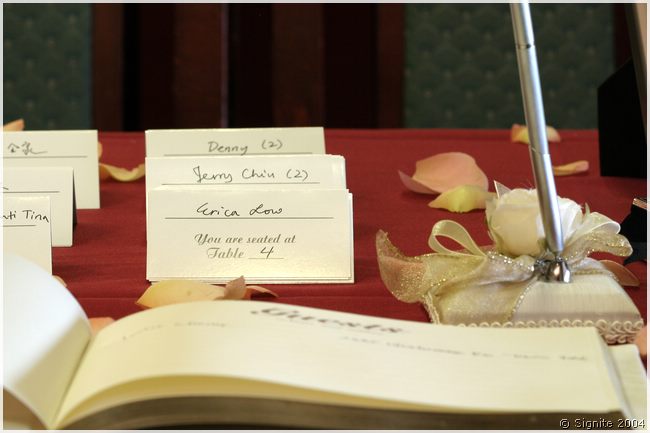 全家
Denny (2)
Jerry Chiu (2)
Erica Low
You are seated at
Table 4
Tina
Guests
© Signite 2004